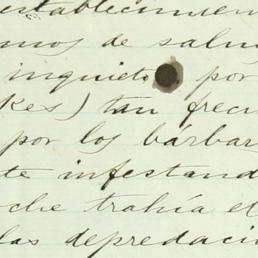 establecimien
mos de salu
inquieto por
kes) tan frecu
por los bárbar
te infestand
che trahía el
las depredaci